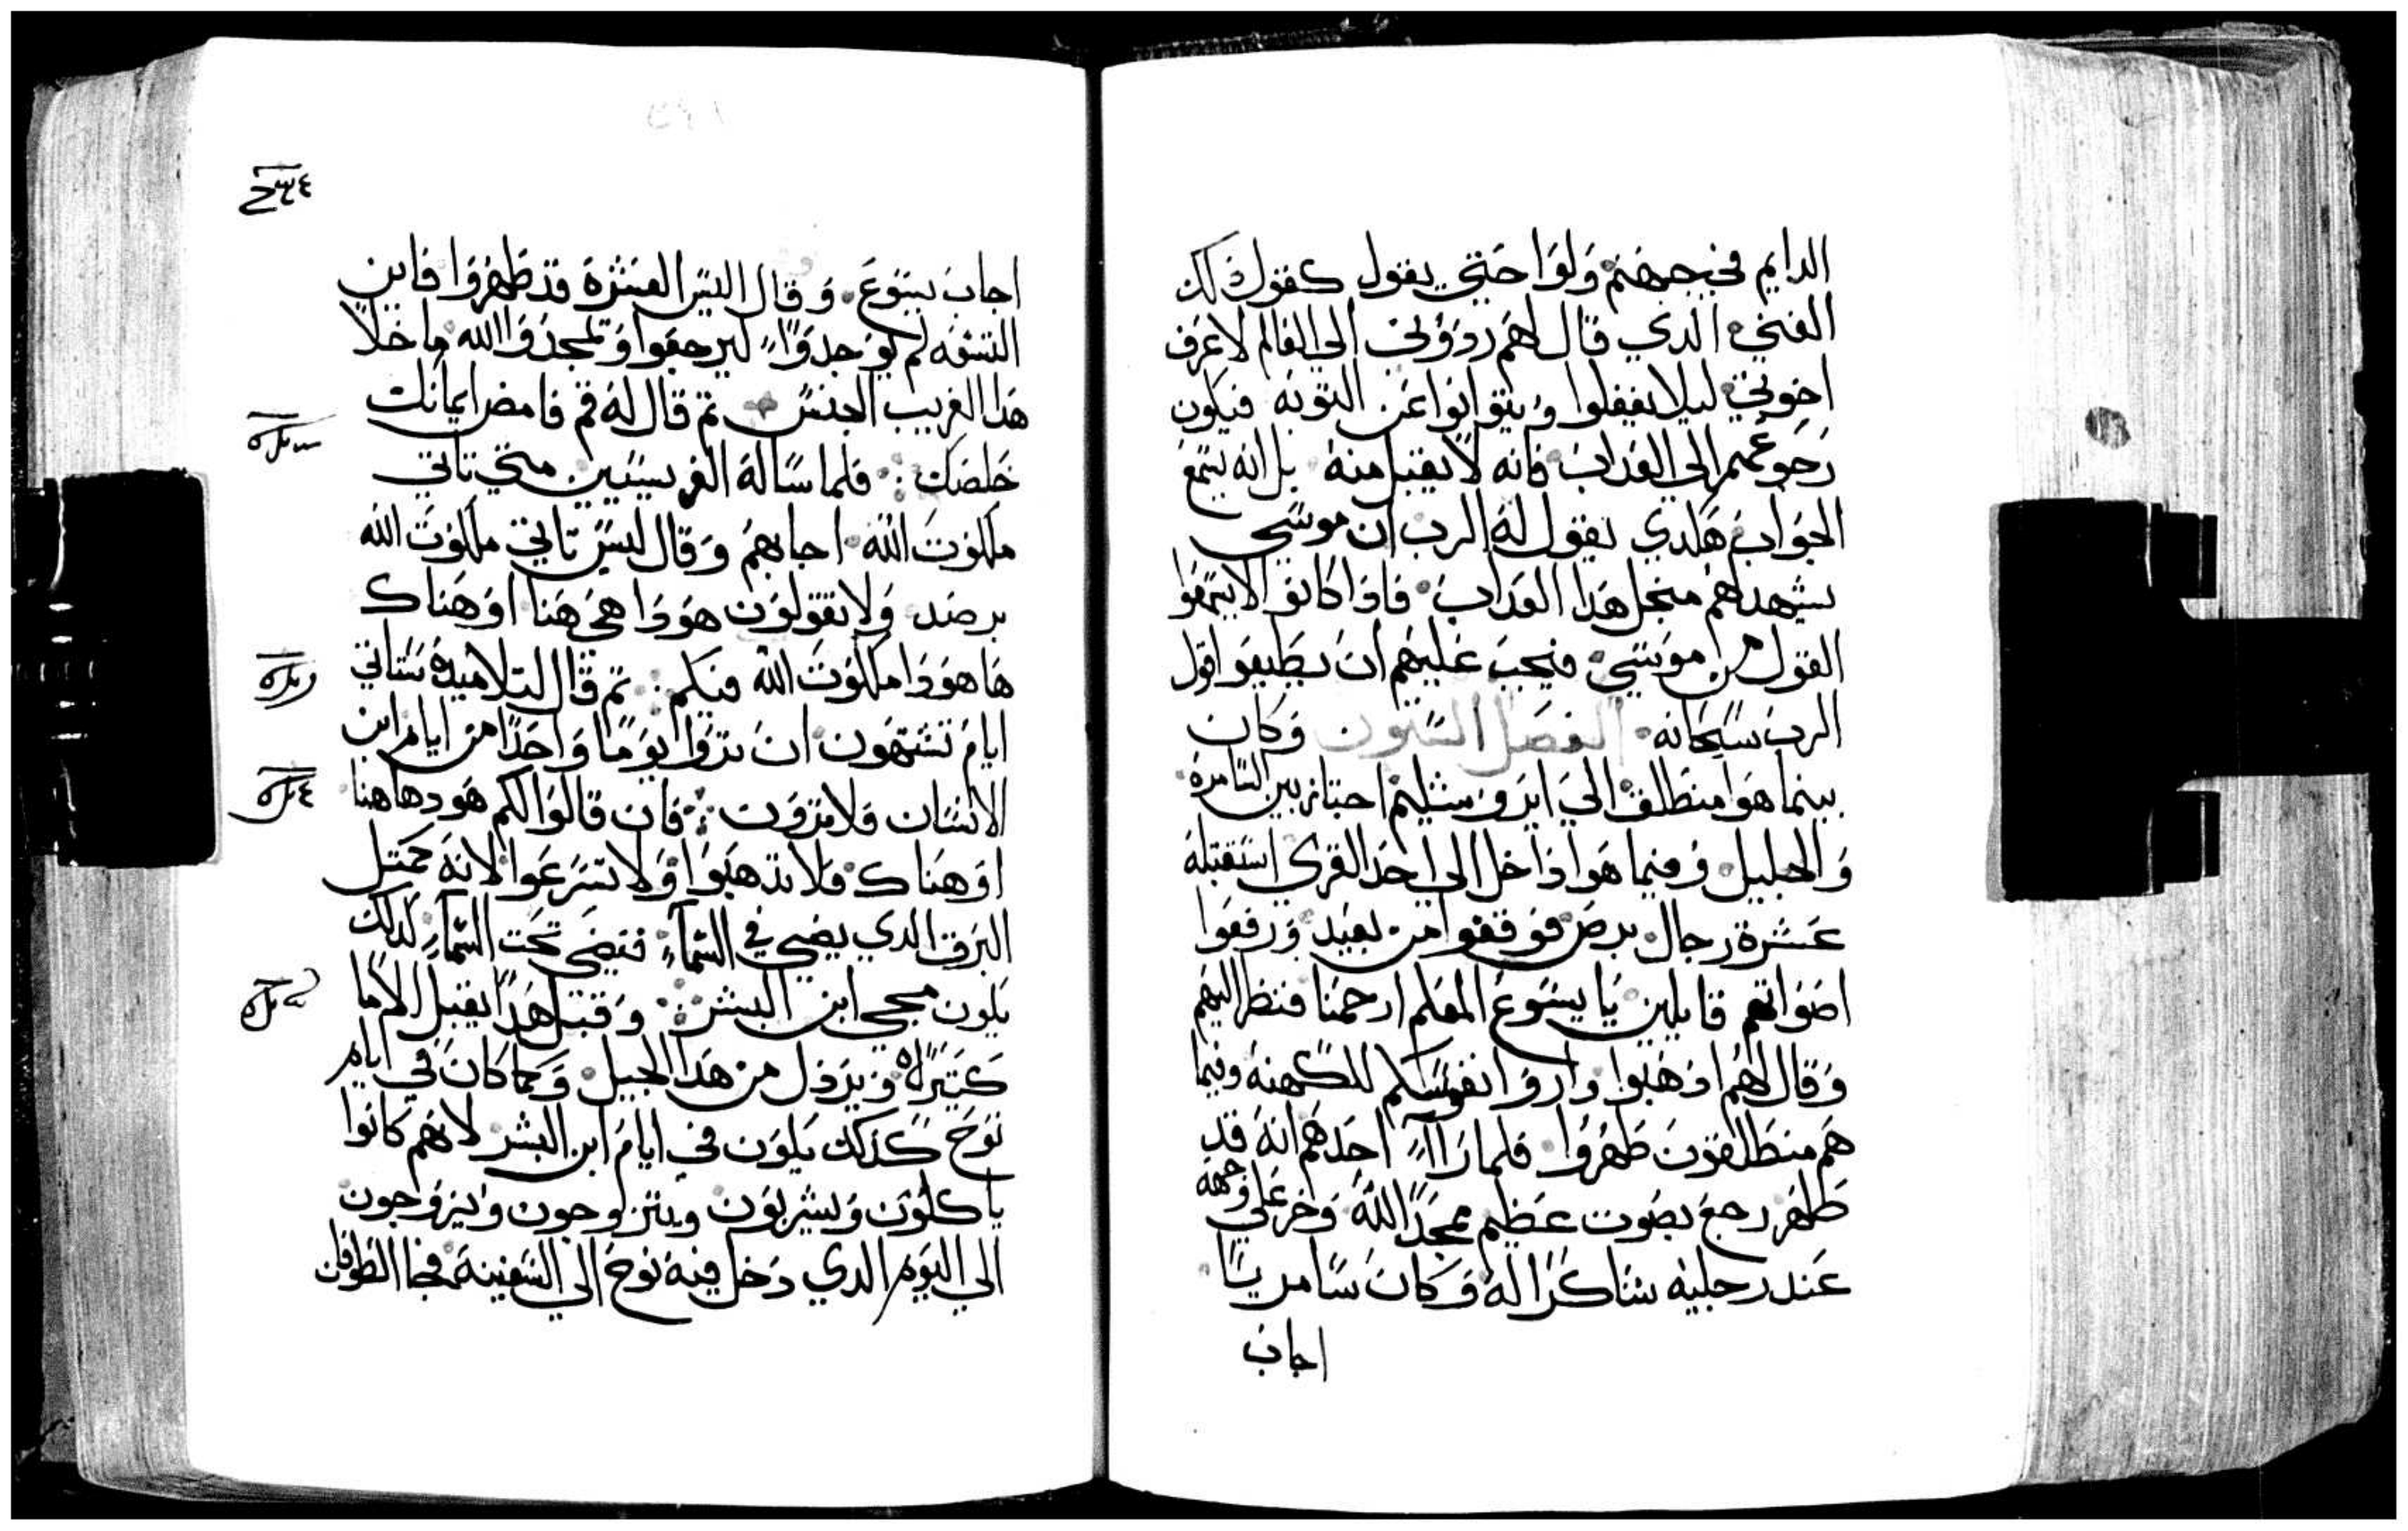 الدايم في جهنم ولوا حتي يقول كقول ذلك
الغني الذي قال لهم ردوني الي العالم لاعرف
اخوتي ليلا يغفلوا ويتوانوا عن التوبه فيكون
رجوعهم الي العداب فانه لا يقبل منه بل انه يسمع
الجواب هكدي يقول له الرب ان موسي
يشهد لهم منجل هدا العداب فادا كانوا لا يسمعوا
القول من موسي فيجب عليهم ان يطيعوا قول
الرب سبحانه الفصل الستون وكان
بينما هوا منطلق الي ايروشليم اجتاز بين السامرة
والجليل وفيما هوا داخل الي احد القري استقبله
عشرة رجال برص فوقفوا من بعيد ورفعوا
اصواتهم قايلين يا يسوع المعلم ارحمنا فنظر اليهم
وقال لهم ادهبوا واروا نفوسكم للكهنه وفيما
هم منطلقون طهروا فلما راآ احدهم انه قد
طهر رجع بصوت عظيم مجد الله وخر علي وجهه
عند رجليه شاكرا له وكان سامريا
اجاب
اجاب يسوع وقال اليس العشرة قد طهروا فاين
التسعه لم يوجدوا ليرجعوا ويمجدوا الله ما خلا
هدا الغريب الجنس تم قال له قم فامض ايمانك
خلصك فلما ساله الفريسيين متي تاتي
ملكوت الله اجابهم وقال ليس تاتي ملكوت الله
برصد ولا يقولون هودا هي هنا او هناك
ها هودا ملكوت الله فيكم تم قال لتلاميده ستاتي
ايام تشتهون ان تروا يوما واحدا من ايام ابن
الانسان فلا ترون فان قالوا لكم هودها هنا
او هناك فلا تدهبوا ولا تسرعوا لانه كمتل
البرق الدي يضي في السمآء فتضي تحت السمآء كدلك
يكون مجي ابن البشر وقبل هدا يقبل الاما
كتيره ويردل من هدا الجيل وكما كان في ايام
نوح كدلك يكون في ايام ابن البشر لانهم كانوا
ياكلون ويشربون ويتزوجون ويزوجون
الي اليوم الدي دخل فيه نوح الي السفينة فجا الطوفان